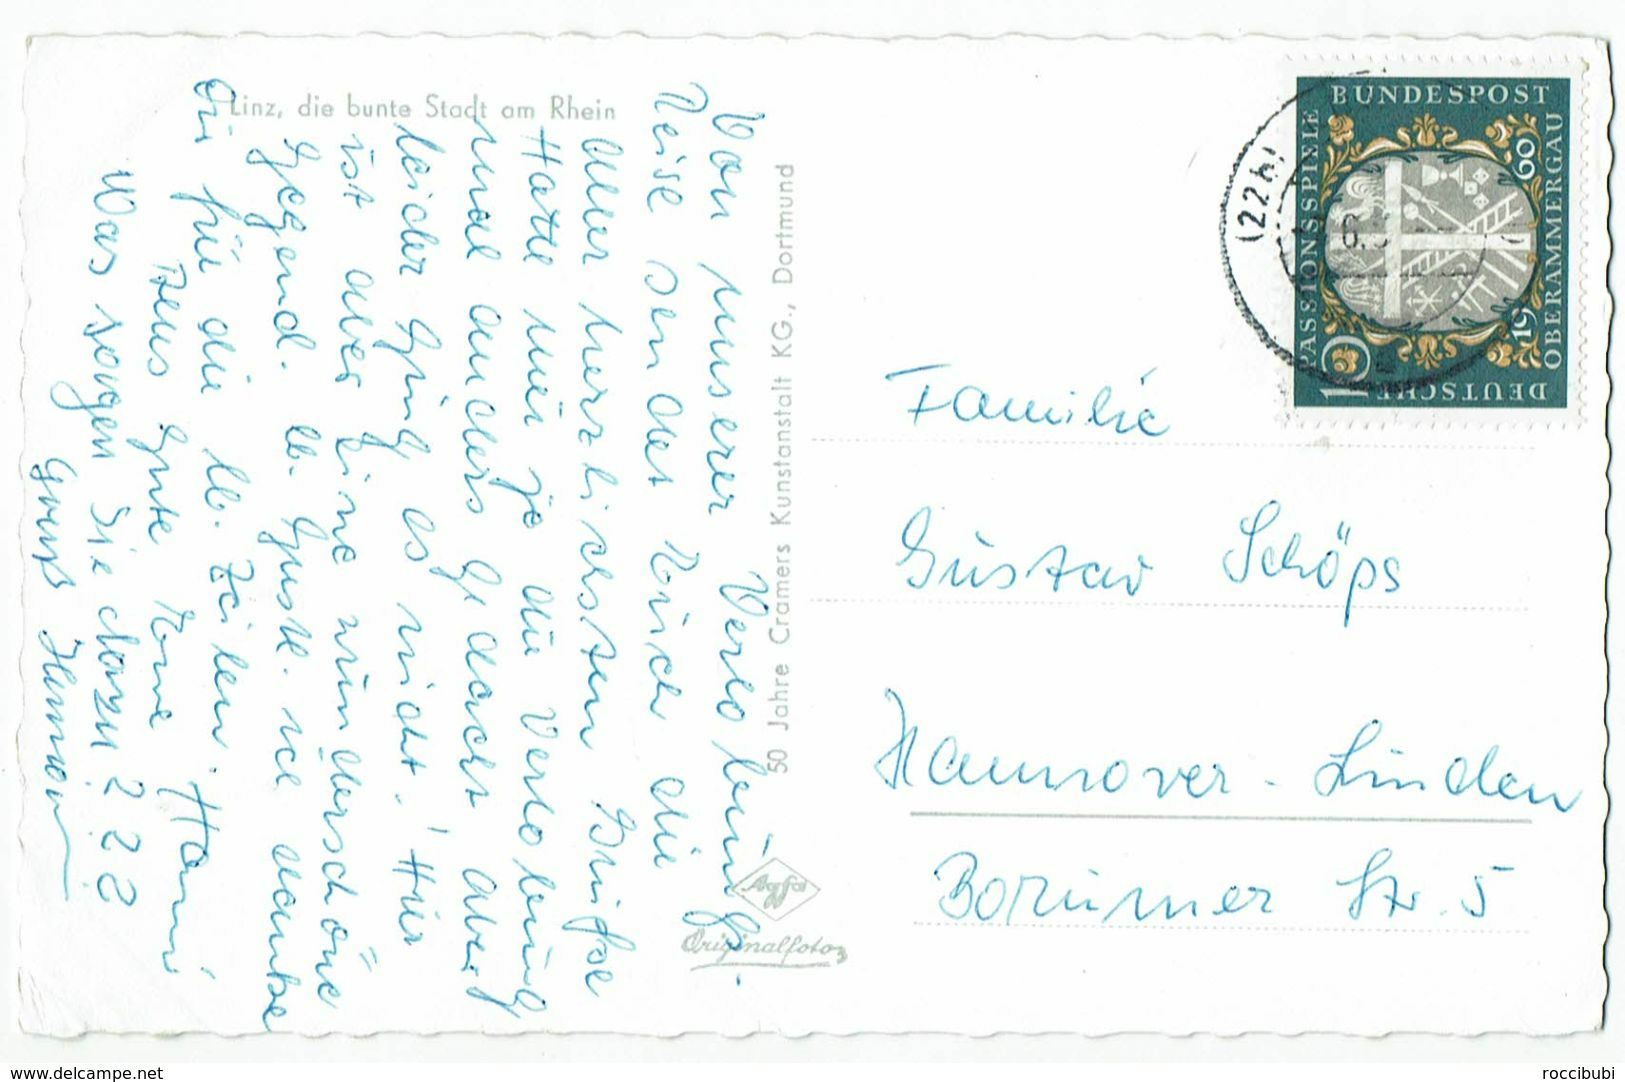 Linz, die bunte Stadt am Rhein
Von unserer Verlobungs-
Reise sendet Euch die
aller herzlichsten Grüße
Hatte mir ja die Verlobung
mal anders gedacht aber
leider ging es nicht. Hier
ist aber eine wunderschöne
Gegend. lb. Gustl. ich danke
Dir für die lb. Zeilen.
Alles Gute Eure Hanni
Was sagen Sie dazu ? ? ?
Gruß
50 Jahre Cramers Kunstanstalt KG., Dortmund
Agfa
Originalfoto
(22h)
DEUTSCHE BUNDESPOST
PASSIONSSPIELE
OBERAMMERGAU
1960
10
Familie
Gustav Schöps
Hannover - Linden
Bornumer Str. 5
www.delcampe.net
roccibubi